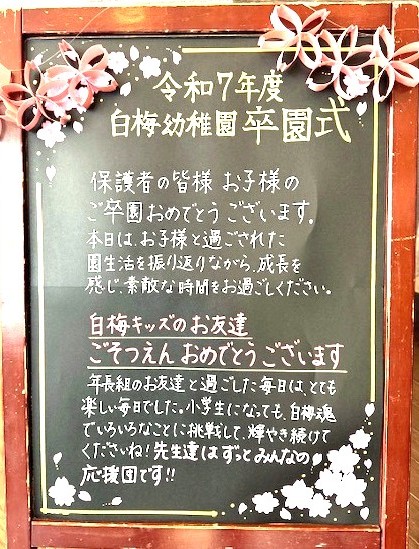 令和7年度
白梅幼稚園 卒園式
保護者の皆様 お子様の
ご卒園おめでとうございます。
本日は、お子様と過ごされた
園生活を振り返りながら、成長を
感じ、素敵な時間をお過ごしください。
白梅キッズのお友達
ごそつえんおめでとうございます
年長組のお友達と過ごした毎日は、とても
楽しい毎日でした。小学生になっても、白梅魂
でいろいろなことに挑戦して、輝やき続けて
くださいね!先生達はずっとみんなの
応援団です!!